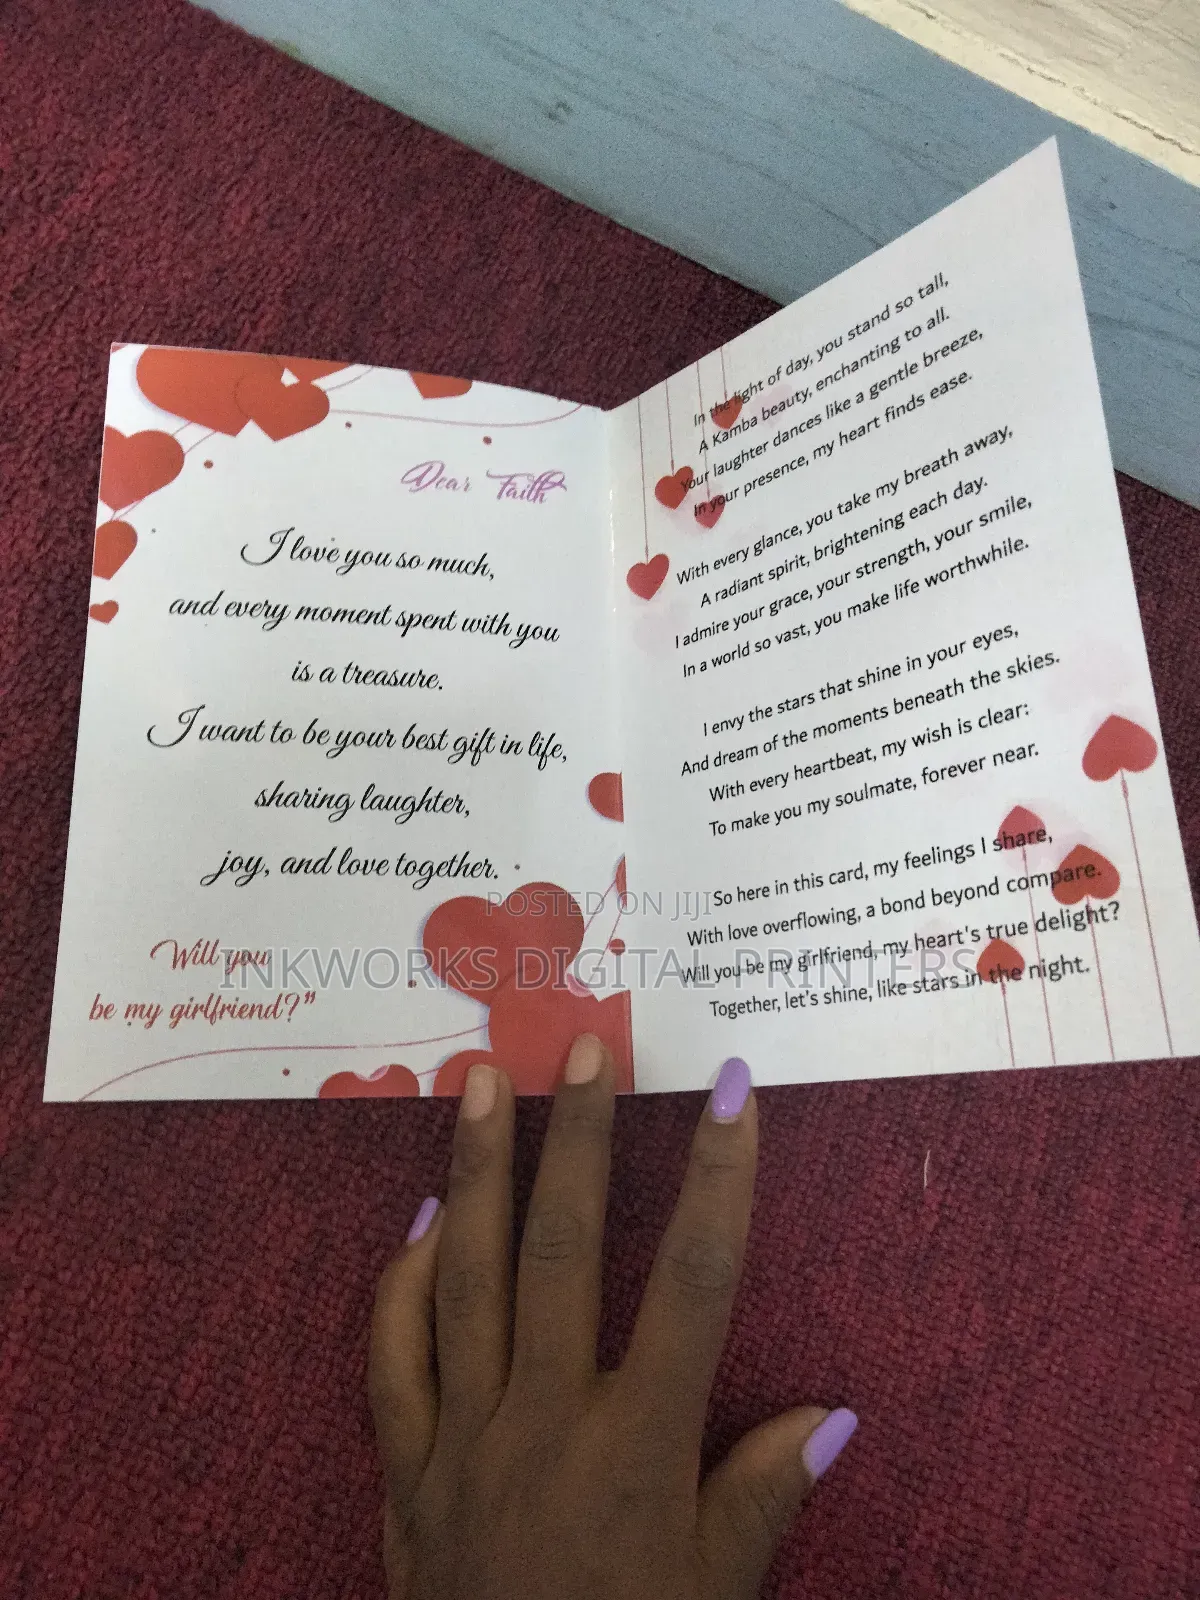 Dear Faith
I love you so much,
and every moment spent with you
is a treasure.
I want to be your best gift in life,
sharing laughter,
joy, and love together.
Will you
be my girlfriend?"
In the light of day, you stand so tall,
A Kamba beauty, enchanting to all.
Your laughter dances like a gentle breeze,
In your presence, my heart finds ease.
With every glance, you take my breath away,
A radiant spirit, brightening each day.
I admire your grace, your strength, your smile,
In a world so vast, you make life worthwhile.
I envy the stars that shine in your eyes,
And dream of the moments beneath the skies.
With every heartbeat, my wish is clear:
To make you my soulmate, forever near.
So here in this card, my feelings I share,
With love overflowing, a bond beyond compare.
Will you be my girlfriend, my heart's true delight?
Together, let's shine, like stars in the night.
POSTED ON JIJI
INKWORKS DIGITAL PRINTERS